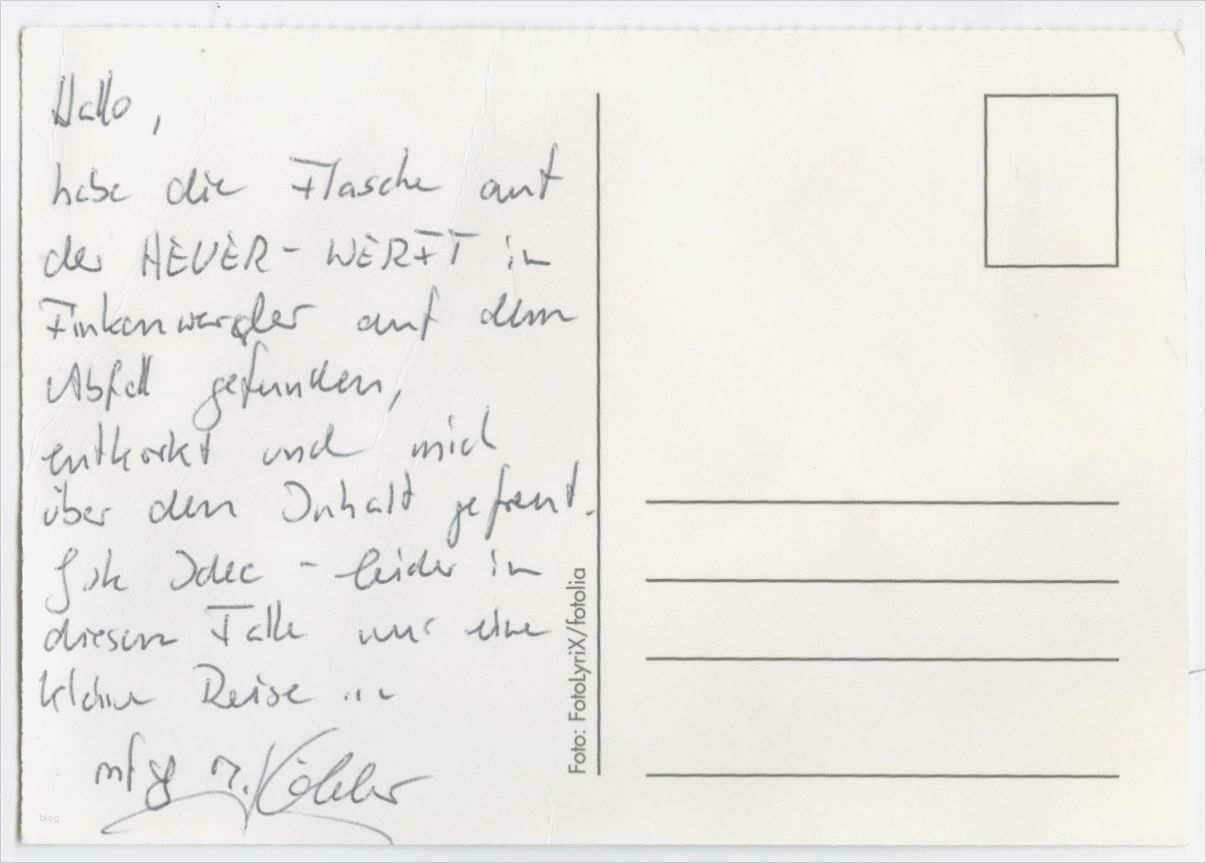 Hallo,
habe die Flasche auf
der HEUER-WERFT in
Finkenwerder auf dem
Abfall gefunden,
entkorkt und mich
über den Inhalt gefreut.
Gute Idee - leider in
diesem Falle nur eine
kleine Reise ...
mfg M. Köhler
Foto: FotoLyriX/fotolia
blog